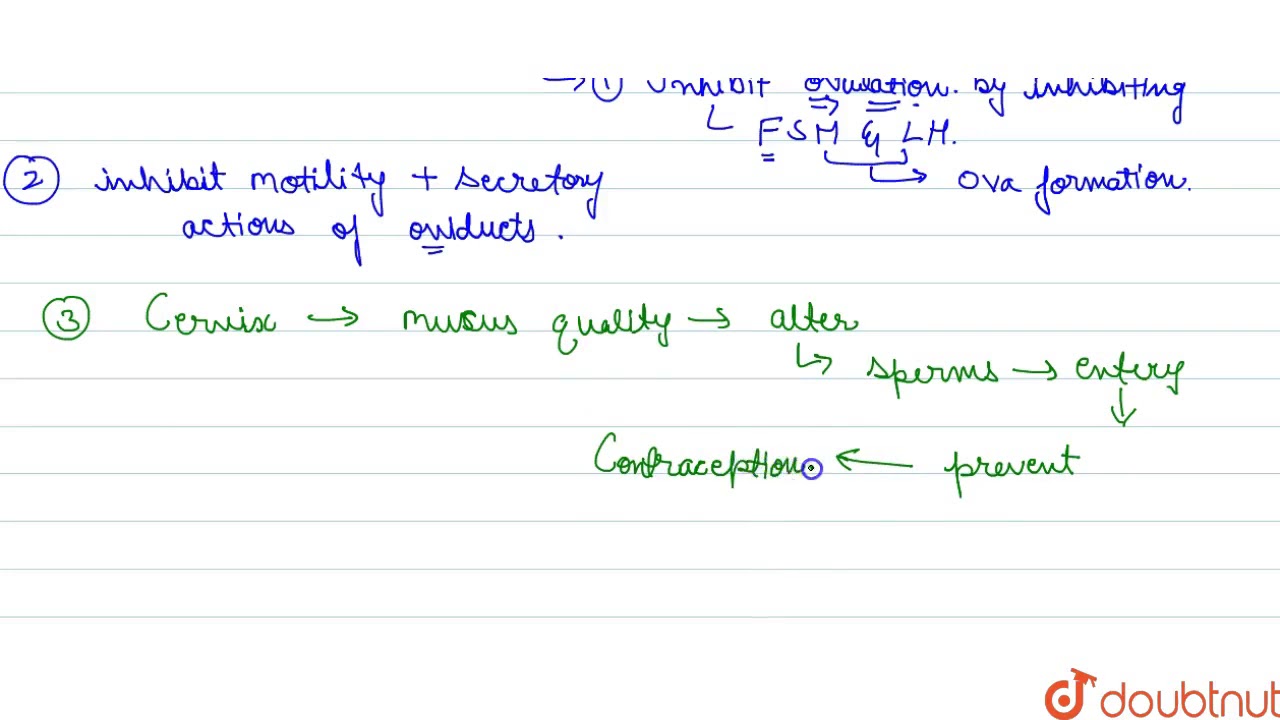 → ① Inhibit ovulation. by inhibiting
FSH & LH.
→ Ova formation.
② inhibit motility + secretory
actions of oviducts.
③ Cervix → mucus quality → alter
↳ sperms → entery
↓
Contraception ← prevent
doubtnut